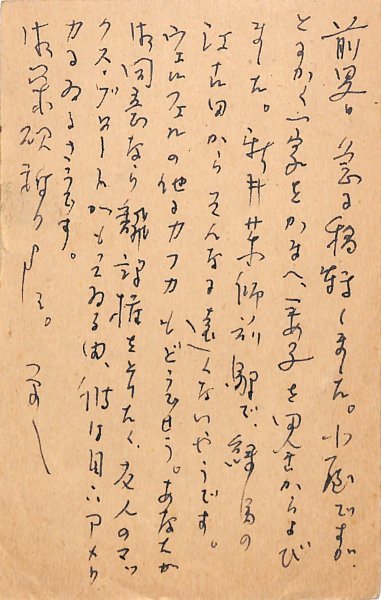 前畧、急に移轉しました。小屋ですが、
ともかく一家をかまへ、妻子を田舎からよび
ました。新井薬師前駅で、練馬の
江古田からそんなに遠くないやうです。
ウェルフェルの他にカフカもどうでせう。あなたが
御同意なら飜訳権を
友人のマッ
クス・ブロートがもってゐる由、彼は目下アメリ
カにゐるさうです。